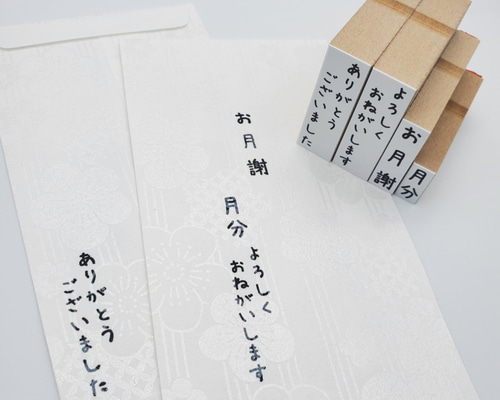 お月謝
月分
よろしく
おねがいします
ありがとう
ございました
ありがとう
ございました
よろしく
おねがいします
お月謝
月分